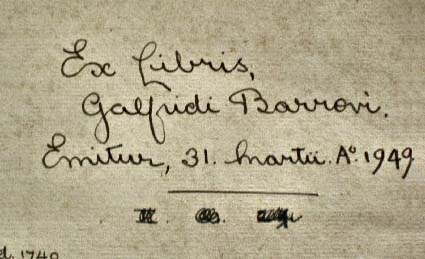 Ex Libris,
Galfridi Barrovi.
Emitur, 31. Martii. Aº. 1949
d. 1740